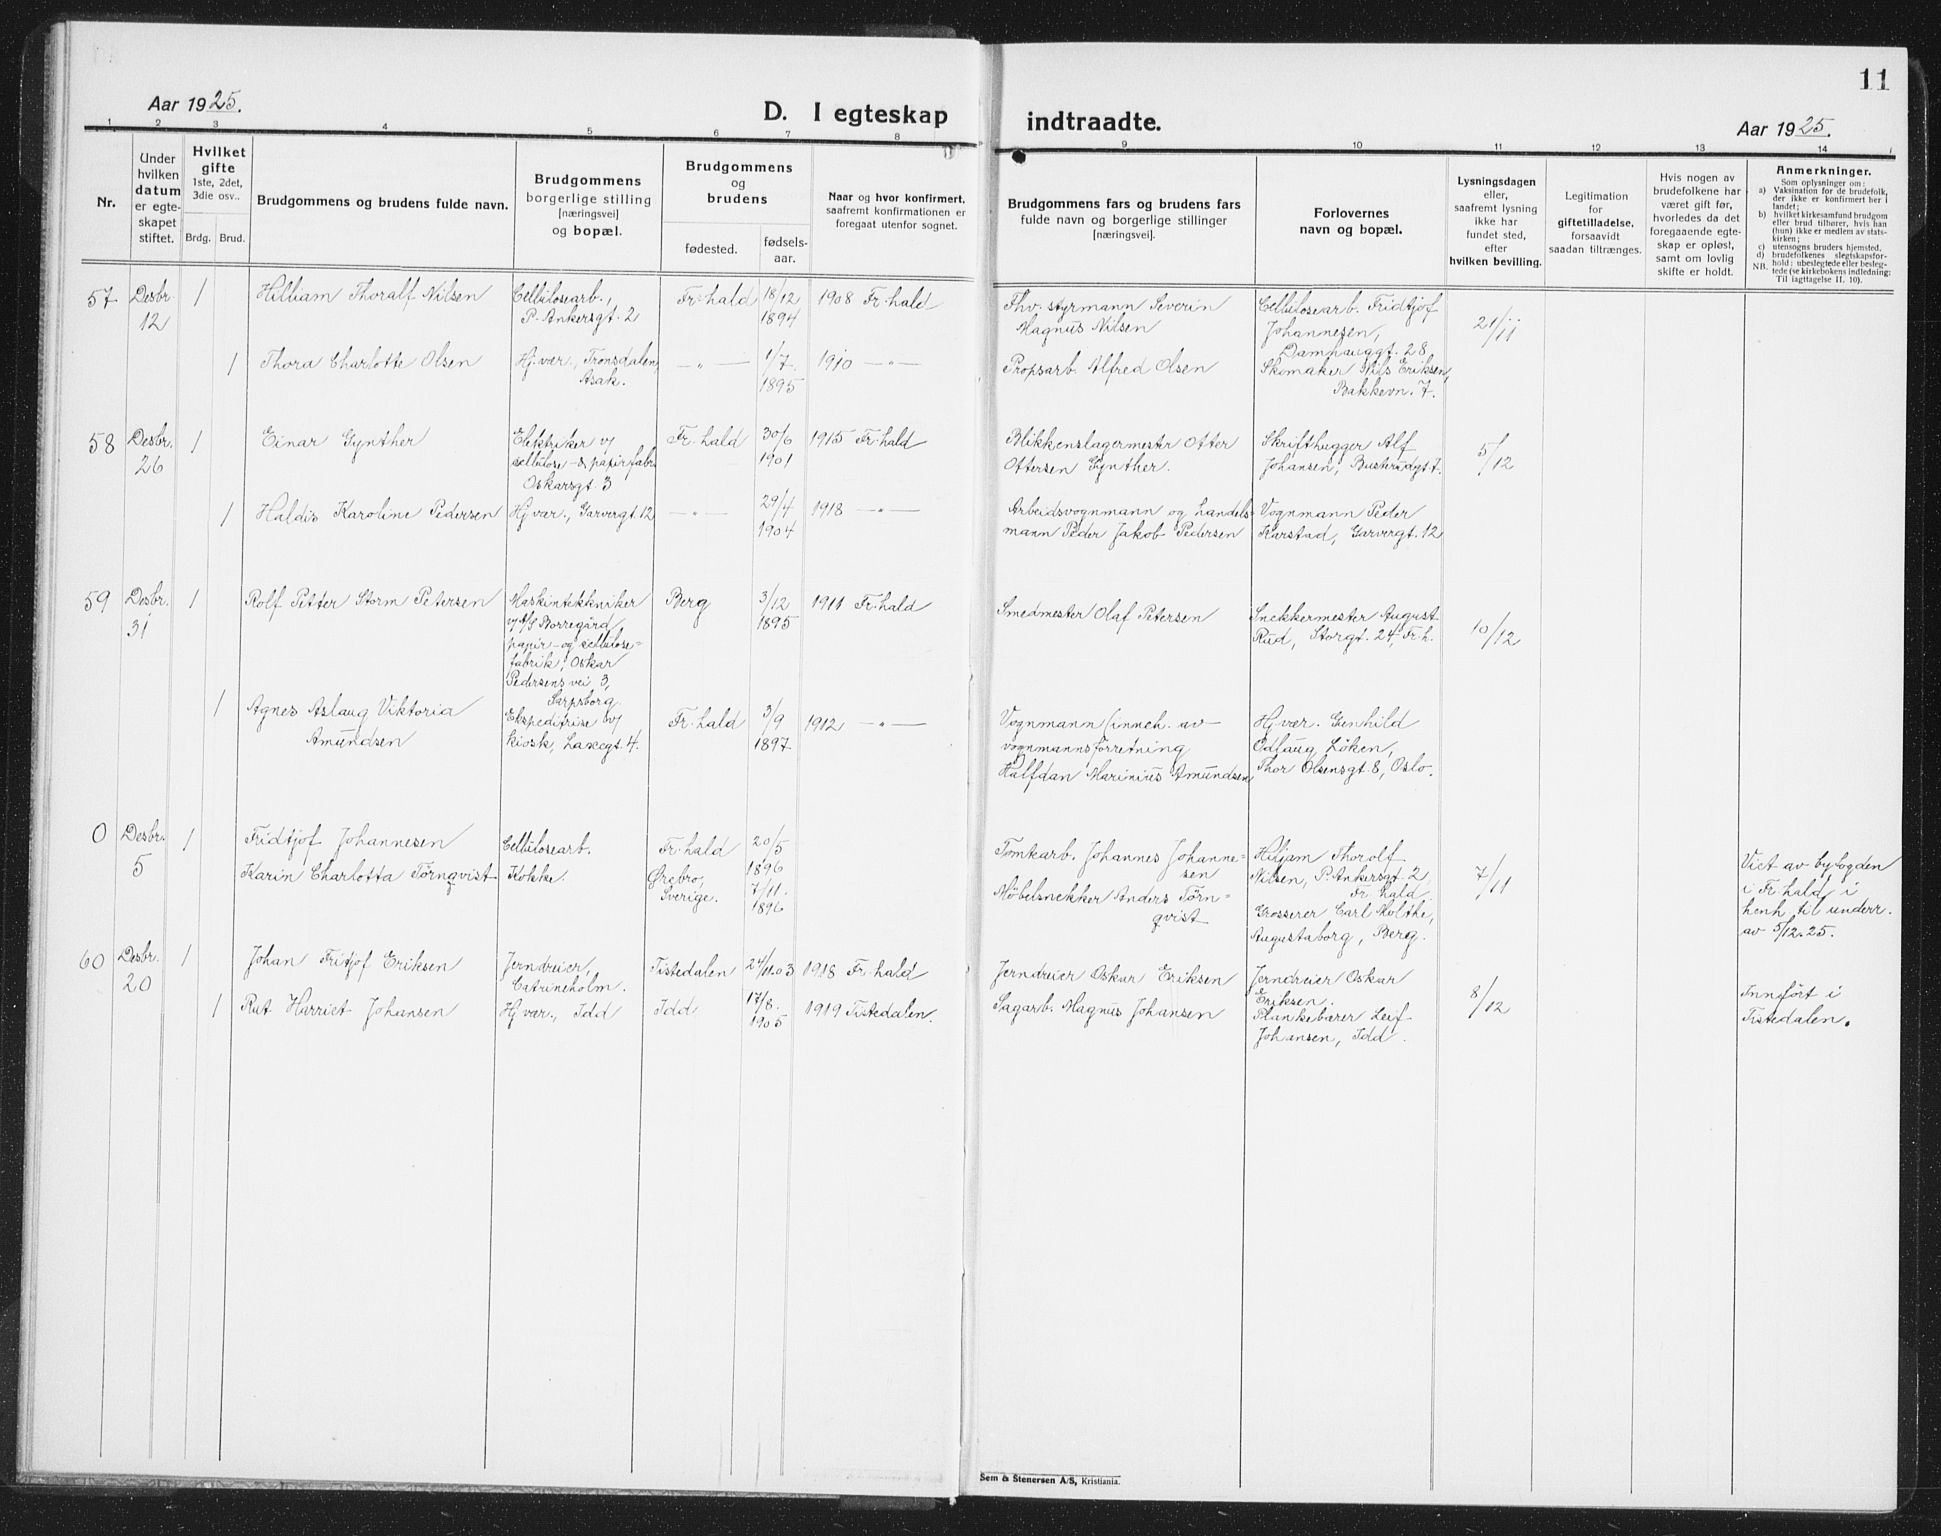 11
Aar 1925.
D. I egteskap indtraadte.
Aar 1925.
1 2 3 4 5 6 7 8 9 10 11 12 13 14
Nr.
Under hvilken datum er egte- skapet stiftet.
Hvilket gifte
1ste, 2det, 3die osv..
Brdg. Brud.
Brudgommens og brudens fulde navn.
Brudgommens borgerlige stilling [næringsvei] og bopæl.
Brudgommens og brudens
fødested.
fødsels- aar.
Naar og hvor konfirmert, saafremt konfirmationen er foregaat utenfor sognet.
Brudgommens fars og brudens fars fulde navn og borgerlige stillinger [næringsvei].
Forlovernes navn og bopæl.
Lysningsdagen eller, saafremt lysning ikke har fundet sted, efter hvilken bevilling.
Legitimation for giftetilladelse, forsaavidt saadan tiltrænges.
Hvis nogen av brudefolkene har været gift før, hvorledes da det foregaaende egte- skap er opløst, samt om lovlig skifte er holdt.
Anmerkninger.
Som oplysninger om:
a) Vaksination for de brudefolk, der ikke er konfirmert her i landet;
b) hvilket kirkesamfund brudgom eller brud tilhører, hvis han (hun) ikke er medlem av stats- kirken;
c) utensogns bruders hjemsted.
d) brudefolkenes slegtskapsfor- hold: ubeslegtede eller besleg-
NB. tede (se kirkebokens indledning: Til iagttagelse II. 10).
57 Desbr. 12 1 Hilliam Thoralf Nilsen Cellulosearb., P. Ankersgt. 2 Fr.hald 18/12 1894 1908 Fr.hald Fhv. styrmann Severin Magnus Nilsen Cellulosearb. Fridtjof Johannesen, Damhauggt. 28 21/11
1 Thora Charlotte Olsen Hj.vær., Tronsdalen, Asak. —"— 1/7 1895 1910 —"— Propsarb. Alfred Olsen Skomaker Nils Eriksen, Bakkevn. 7.
58 Desbr. 26 1 Einar Gynther Elektriker v/ cellulose- & papirfabr. Oskarsgt. 3 Fr.hald 30/6 1901 1915 Fr.hald Blikkenslagermester Otter Ottersen Gynther. Skrifthugger Alf Johansen, Busterudgt. 7. 5/12
1 Haldis Karoline Pedersen Hj.vær., Garvergt. 12 —"— 29/4 1904 1918 —"— Arbeidsvognmann og handels- mann Peder Jakob Pedersen Vognmann Peder Karstad, Garvergt. 12
59 Desbr. 31 1 Rolf Petter Storm Petersen Maskintekkniker v/ A/S Borregård papir- og cellulose= fabrik, Oskar Pedersens vei 3, Sarpsborg. Berg 3/12 1895 1911 Fr.hald Smedmester Olaf Petersen Snekkermester August Rud, Storgt. 24, Fr.h. 10/12
1 Agnes Aslaug Viktoria Amundsen Ekspeditrise v/ kiosk, Laxegt. 4. Fr.hald 3/9 1897 1912 —"— Vognmann (inneh. av vognmannsforretning Halfdan Marinius Amundsen Hj.vær. Gunhild Odlaug Löken, Thor Olsensgt. 8, Oslo.
0 Desbr. 5 1 Fridtjof Johannesen Cellulosearb. Fr.hald 20/5 1896 Tomtarb. Johannes Johanne= sen Hiljam Thorolf Nilsen, P. Ankersgt. 2, Fr.hald. 7/11 Viet av byfogden i Fr.hald i henh. til underr. av 5/12.25.
Karin Charlotta Törnqvist Kokke. Ørebro, Sverige. 7/11. 1896 Möbelsnekker Anders Törn= qvist Grosserer Carl Molthe, Augustaborg, Berg.
60 Desbr. 20 1 Johan Fritjof Eriksen Jerndreier, Catrineholm. Tistedalen 24/11.03 1918 Fr.hald Jerndreier Oskar Eriksen Jerndreier Oskar Eriksen. 8/12 Innfört i Tistedalen.
1 Rut Harriet Johansen Hj.vær., Idd Idd 17/8. 1905 1919 Tistedalen. Sagarb. Magnus Johansen Plankebærer Leif Johansen, Idd.
Sem & Stenersen A/S, Kristiania.